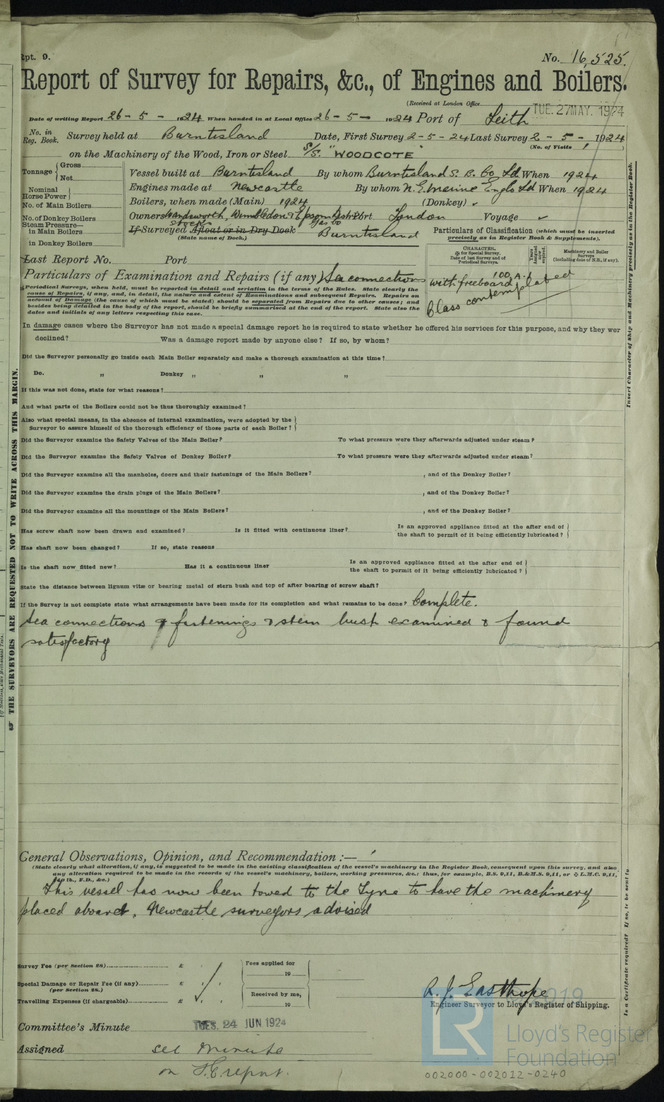 Rpt. 9.
No. 16,525.
Report of Survey for Repairs, &c., of Engines and Boilers.
(Received at London Office
TUE. 27 MAY. 1924
Date of writing Report 26-5-1924 When handed in at Local Office 26-5-1924 Port of Leith
No. in Reg. Book. Survey held at Burntisland Date, First Survey 2-5-24 Last Survey 2-5-1924
(No. of Visits 1)
on the Machinery of the Wood, Iron or Steel S/S. "WOODCOTE"
Tonnage { Gross
Net
Vessel built at Burntisland By whom Burntisland S. B. Co Ld When 1924
Nominal Horse Power
Engines made at Newcastle By whom N.E. Marine Eng Co Ld When 1924
No. of Main Boilers
Boilers, when made (Main) 1924 (Donkey)
No. of Donkey Boilers
Owners Wandsworth, Wimbledon & Epsom Port London Voyage
Steam Pressure—
in Main Boilers
in Donkey Boilers
If Surveyed Afloat or in Dry Dock Burntisland
(State name of Dock.)
Particulars of Classification (which must be inserted
precisely as in Register Book & Supplements).
Last Report No. Port
Particulars of Examination and Repairs (if any) Sea connections
CHARACTER,
Machinery and Boiler Surveys
100A1
with freeboard
Class contemplated
Periodical Surveys, when held, must be reported in detail and seriatim in the terms of the Rules. State clearly the
causes of Repairs, if any, and, in detail, the nature and extent of Examinations and subsequent Repairs. Repairs on
account of Damage (the cause of which must be stated) should be separated from Repairs due to other causes; and
besides being detailed in the body of the report, should be briefly summarised at the end of the report. State also the
dates and initials of any letters respecting this case.
In damage cases where the Surveyor has not made a special damage report he is required to state whether he offered his services for this purpose, and why they wer
declined? Was a damage report made by anyone else? If so, by whom?
Did the Surveyor personally go inside each Main Boiler separately and make a thorough examination at this time?
Do. „ Donkey „ „ „
If this was not done, state for what reasons?
And what parts of the Boilers could not be thus thoroughly examined?
Also what special means, in the absence of internal examination, were adopted by the
Surveyor to assure himself of the thorough efficiency of those parts of each Boiler?
Did the Surveyor examine the Safety Valves of the Main Boiler? To what pressure were they afterwards adjusted under steam?
Did the Surveyor examine the Safety Valves of Donkey Boiler? To what pressure were they afterwards adjusted under steam?
Did the Surveyor examine all the manholes, doors and their fastenings of the Main Boilers? , and of the Donkey Boiler?
Did the Surveyor examine the drain plugs of the Main Boilers? , and of the Donkey Boiler?
Did the Surveyor examine all the mountings of the Main Boilers? , and of the Donkey Boiler?
Has screw shaft now been drawn and examined? Is it fitted with continuous liner? Is an approved appliance fitted at the after end of
the shaft to permit of it being efficiently lubricated?
Has shaft now been changed? If so, state reasons
Is the shaft now fitted new? Has it a continuous liner Is an approved appliance fitted at the after end of
the shaft to permit of it being efficiently lubricated?
State the distance between lignum vitæ or bearing metal of stern bush and top of after bearing of screw shaft?
If the Survey is not complete state what arrangements have been made for its completion and what remains to be done? Complete.
Sea connections & fastenings & stern bush examined & found
satisfactory
General Observations, Opinion, and Recommendation :—
(State clearly what alteration, if any, is suggested to be made in the existing classification of the vessel's machinery in the Register Book, consequent upon this survey, and also
any alteration required to be made in the records of the vessel's machinery, boilers, working pressures, &c.; thus, for example, B.S. 9,11, B.&M.S. 9,11, or L.M.C. 9,11,
This vessel has now been towed to the Tyne to have the machinery
placed aboard, Newcastle surveyors advised
Survey Fee (per Section 28) £
Special Damage or Repair Fee (if any) £
(per Section 28.)
Travelling Expenses (if chargeable) £
Fees applied for
19
Received by me,
19
R. J. Easthope
Engineer Surveyor to Lloyd's Register of Shipping.
Committee's Minute TUES. 24 JUN 1924
Assigned see minute
on F.E. report.
THE SURVEYORS ARE REQUESTED NOT TO WRITE ACROSS THIS MARGIN.
Insert Character of Ship and Machinery precisely as in the Register Book.
Is a Certificate required? If so, to be sent to
LR
2019
Lloyd's Register
Foundation
002000-002012-0240